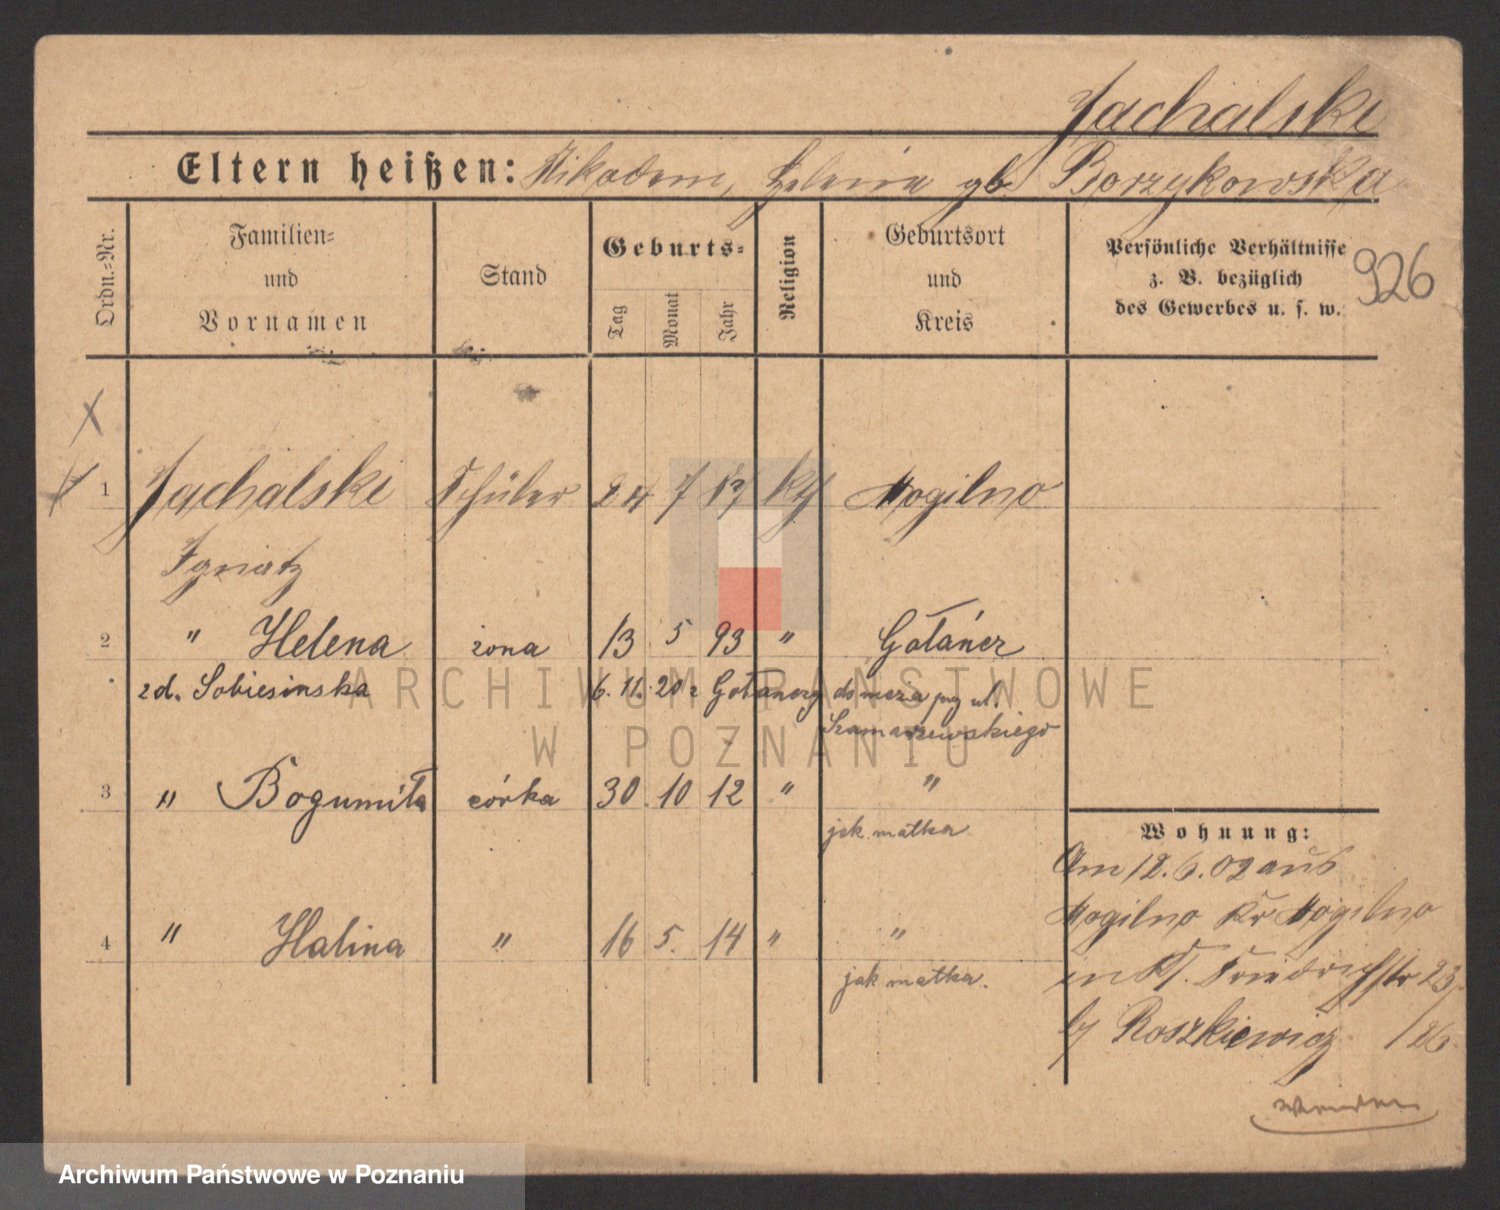 Jachalski
Eltern heißen: Nikodem, Helena gb Borzykowska
Ordn.=Nr.
Familien=
und
Vornamen
Stand
Geburts=
Tag
Monat
Jahr
Religion
Geburtsort
und
Kreis
Persönliche Verhältnisse
z. B. bezüglich
des Gewerbes u. s. w.
926
X
1 Jachalski Schüler 24 7 87 kth Mogilno
Ignatz
2 " Helena żona 13 5 93 " Gołańcz
zd. Sobiesinska 6. 11. 20 z Gołanczy do męża przy ul.
Szamarzewskiego
3 " Bogumiła córka 30 10 12 " "
jak matka
4 " Halina " 16 5. 14 " "
jak matka.
Wohnung:
Am 12.6.02 aus
Mogilno Kr Mogilno
in Friedrichstr 23
by Roszkiewicz /26
ARCHIWUM PAŃSTWOWE
W POZNANIU
Archiwum Państwowe w Poznaniu